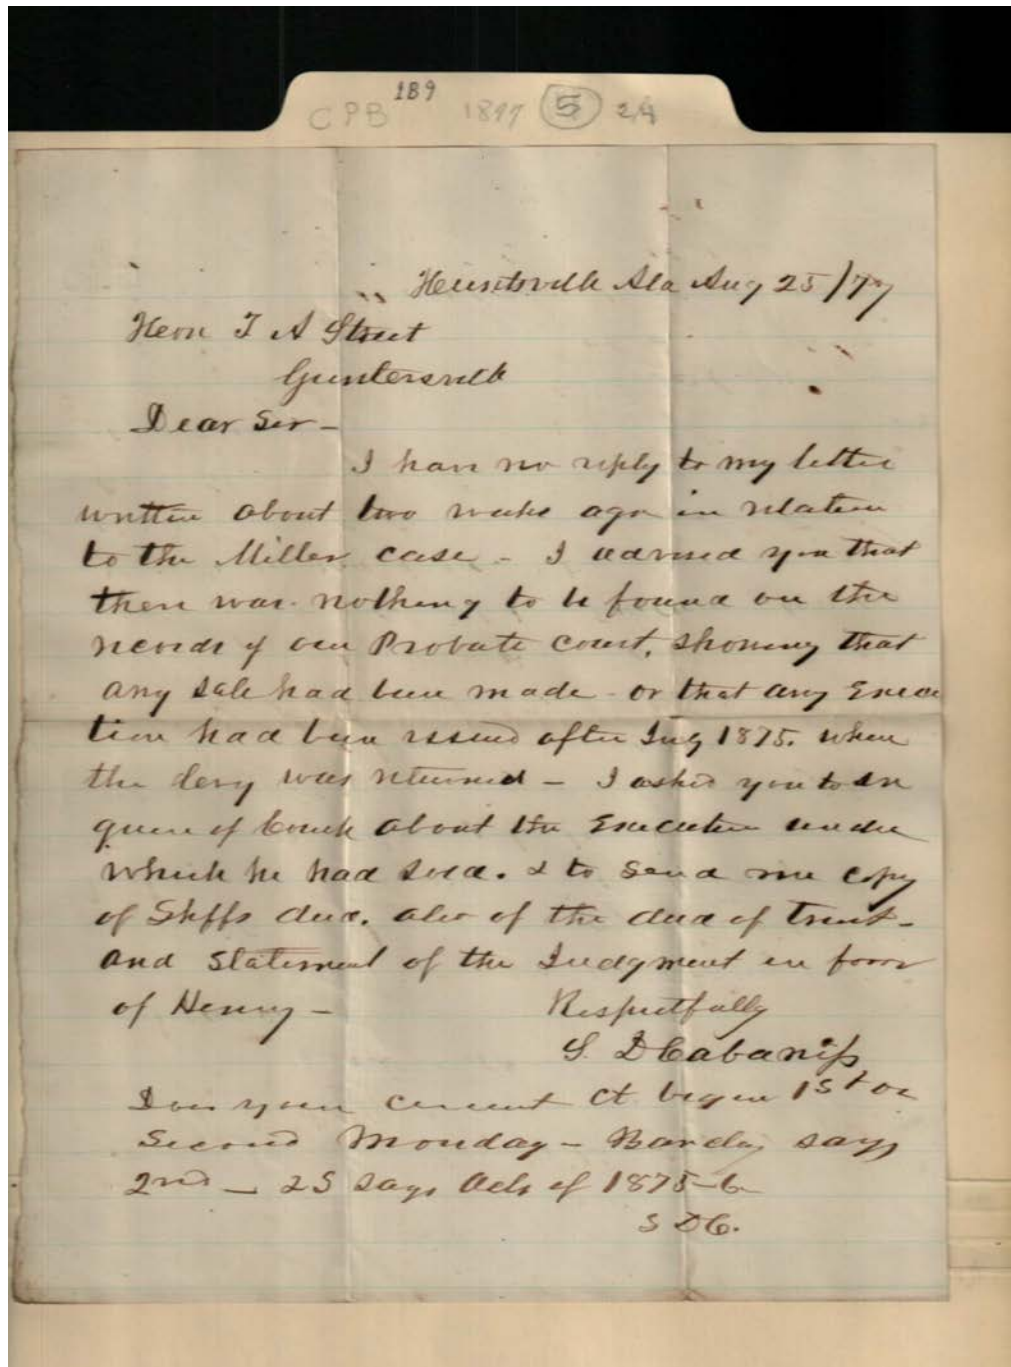 CPB 189 1877 5 24
Huntsville Ala Aug 25/77
Hon T A Street
Guntersville
Dear Sir -
I have no reply to my letter
written about two weeks ago in relation
to the Miller case - I advised you that
there was nothing to be found on the
records of our Probate court, showing that
any sale had been made - or that any Execu
tion had been issued after July 1875. when
the levy was returned - I asked you to en
quire of Couch about the Execution under
which he had sold. & to send me copy
of Shffs deed. also of the deed of trust -
and statement of the Judgment in favor
of Henry -
Respectfully
S. D Cabaniss
Does your circuit Ct begin 1st or
Second Monday - Barclay says
2nd - 2S says Acts of 1875-6
S D C.